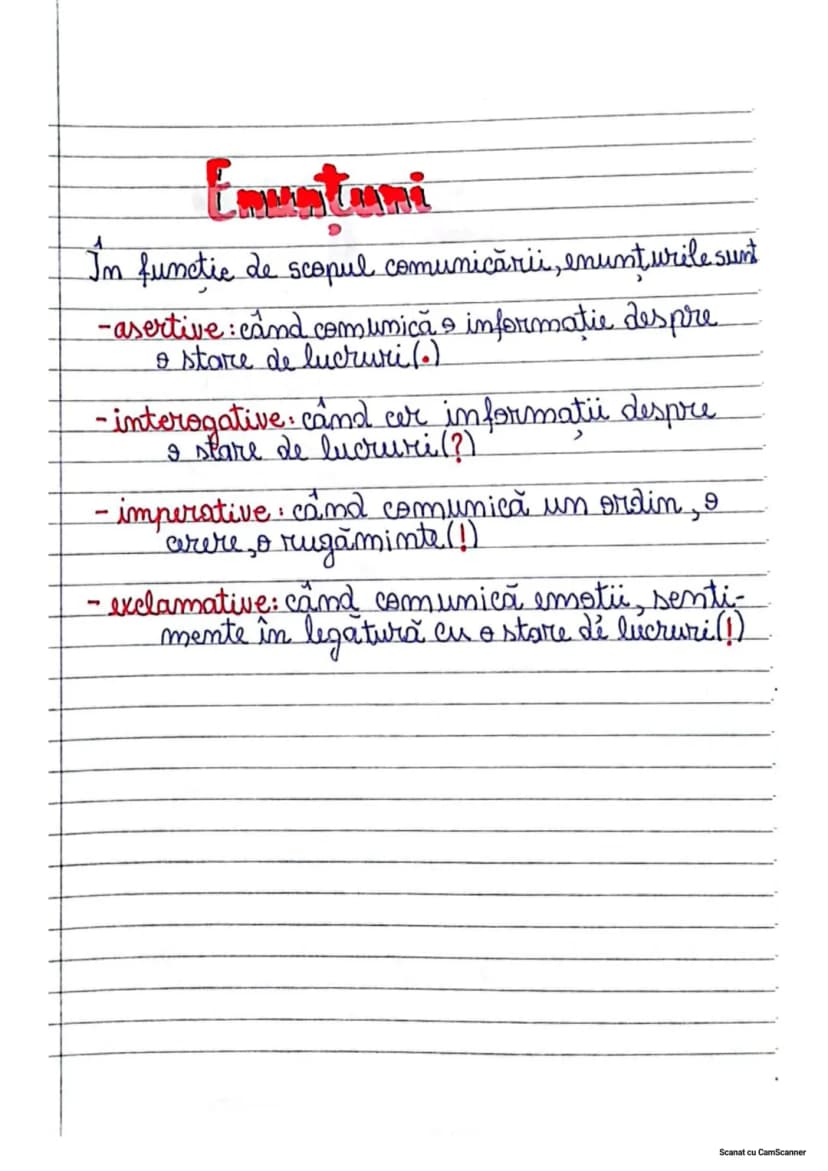 Enunțuri
În funcție de scopul comunicării, enunțurile sunt
-asertive: când comunică o informație despre
o stare de lucruri(.)
- interogative: când cer informații despre
o stare de lucruri(?)
- imperative: când comunică un ordin, o
cerere, o rugăminte(!)
- exclamative: când comunică emotii, senti-
mente în legătură cu o stare de lucruri(!)
Scanat cu CamScanner